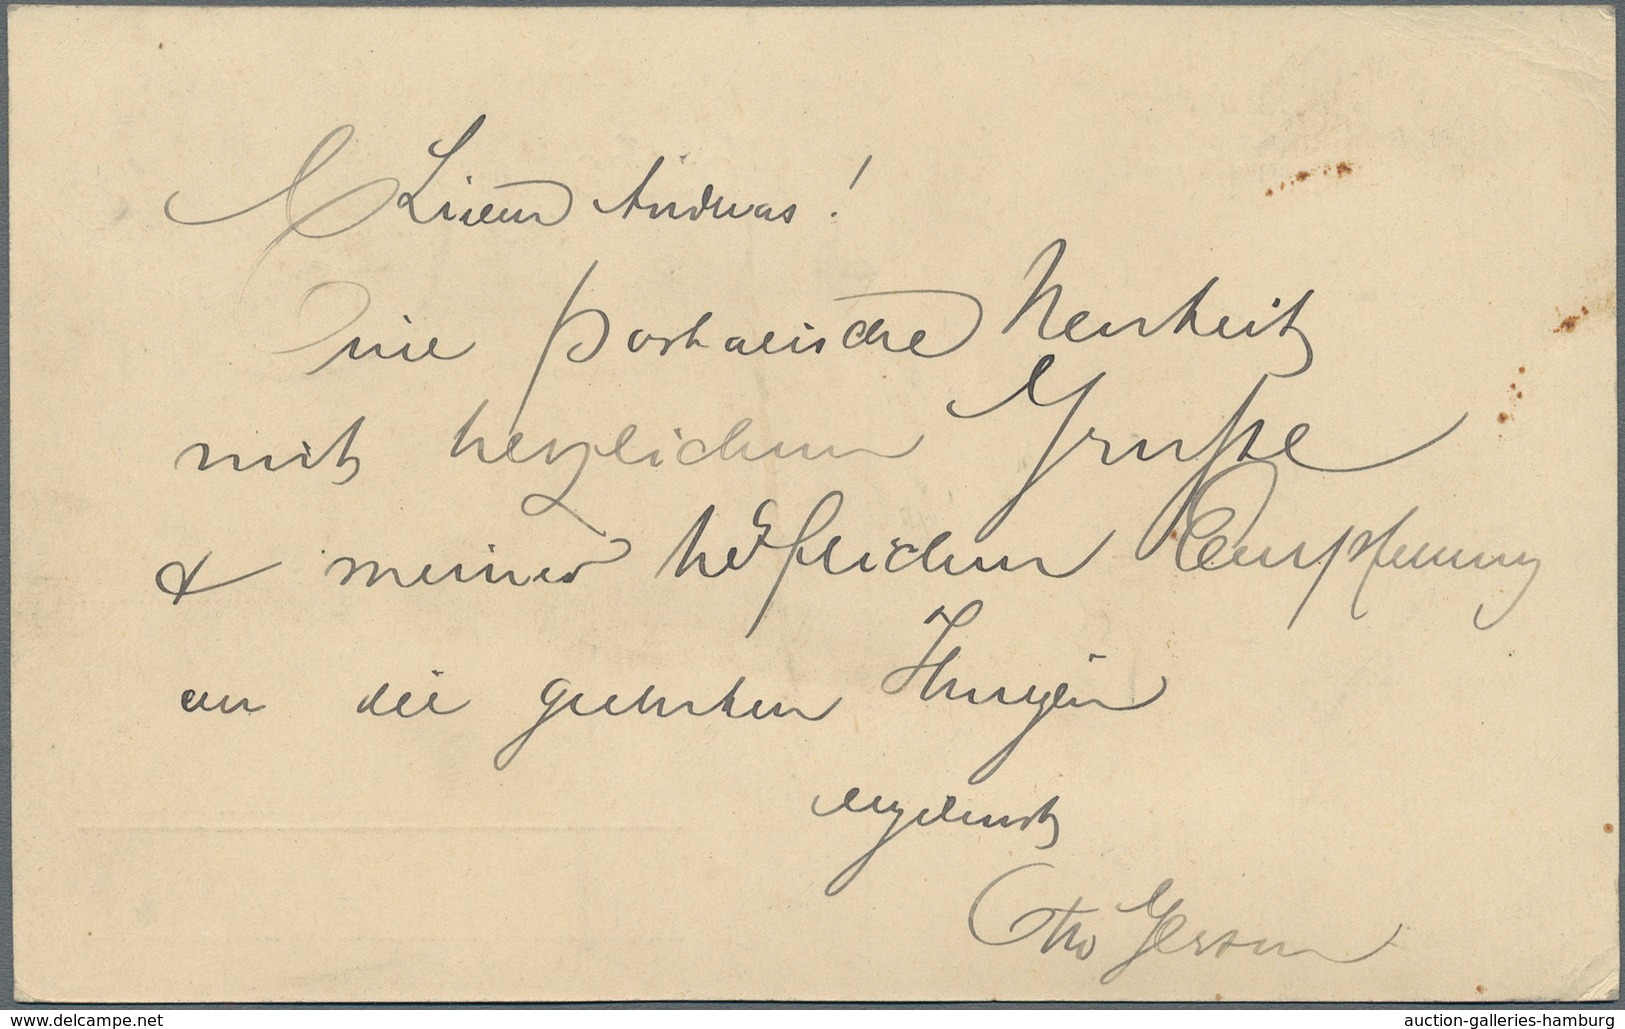 Lieber Andreas!
Eine postalische Neuheit
mit herzlichem Gruße
& meiner höflichen Empfehlung
an die geehrten
ergebenst
Otto Gerson
www.delcampe.net
auction-galleries-hamburg